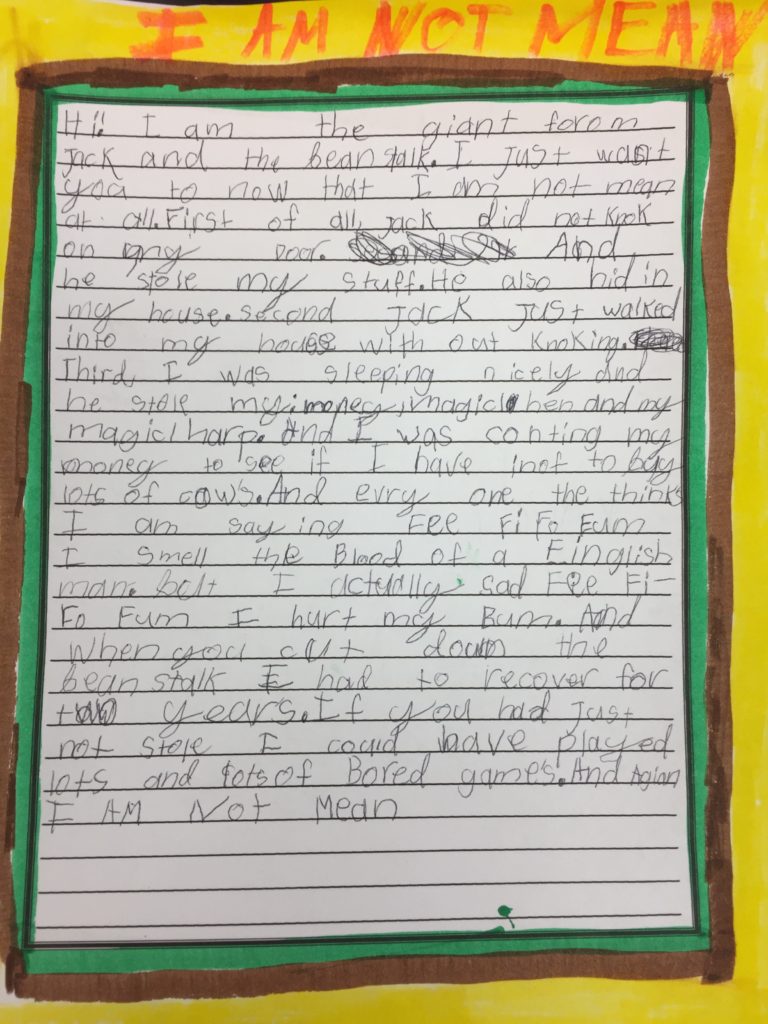 I AM NOT MEAN
Hi! I am the giant forom
Jack and the bean stalk. I Just want
you to now that I am not mean
at all. First of all, Jack did not Knok
on my Door. And
he stole my stuff. He also hid in
my house. second Jack Just walked
into my house with out Knoking.
Third I was sleeping nicely and
he stole my money, magicl hen and my
magicl harp. And I was conting my
money to see if I have inof to bay
lots of cows. And evry one the thinks
I am say ing Fee Fi Fo Fum
I smell the Blood of a Einglish
man. but I actually sad Fee Fi-
Fo Fum I hurt my Bum. And
when you cut down the
bean stalk I had to recover for
years. If you had Just
not stole I could have played
lots and lots of Bored games. And Agian
I AM Not Mean